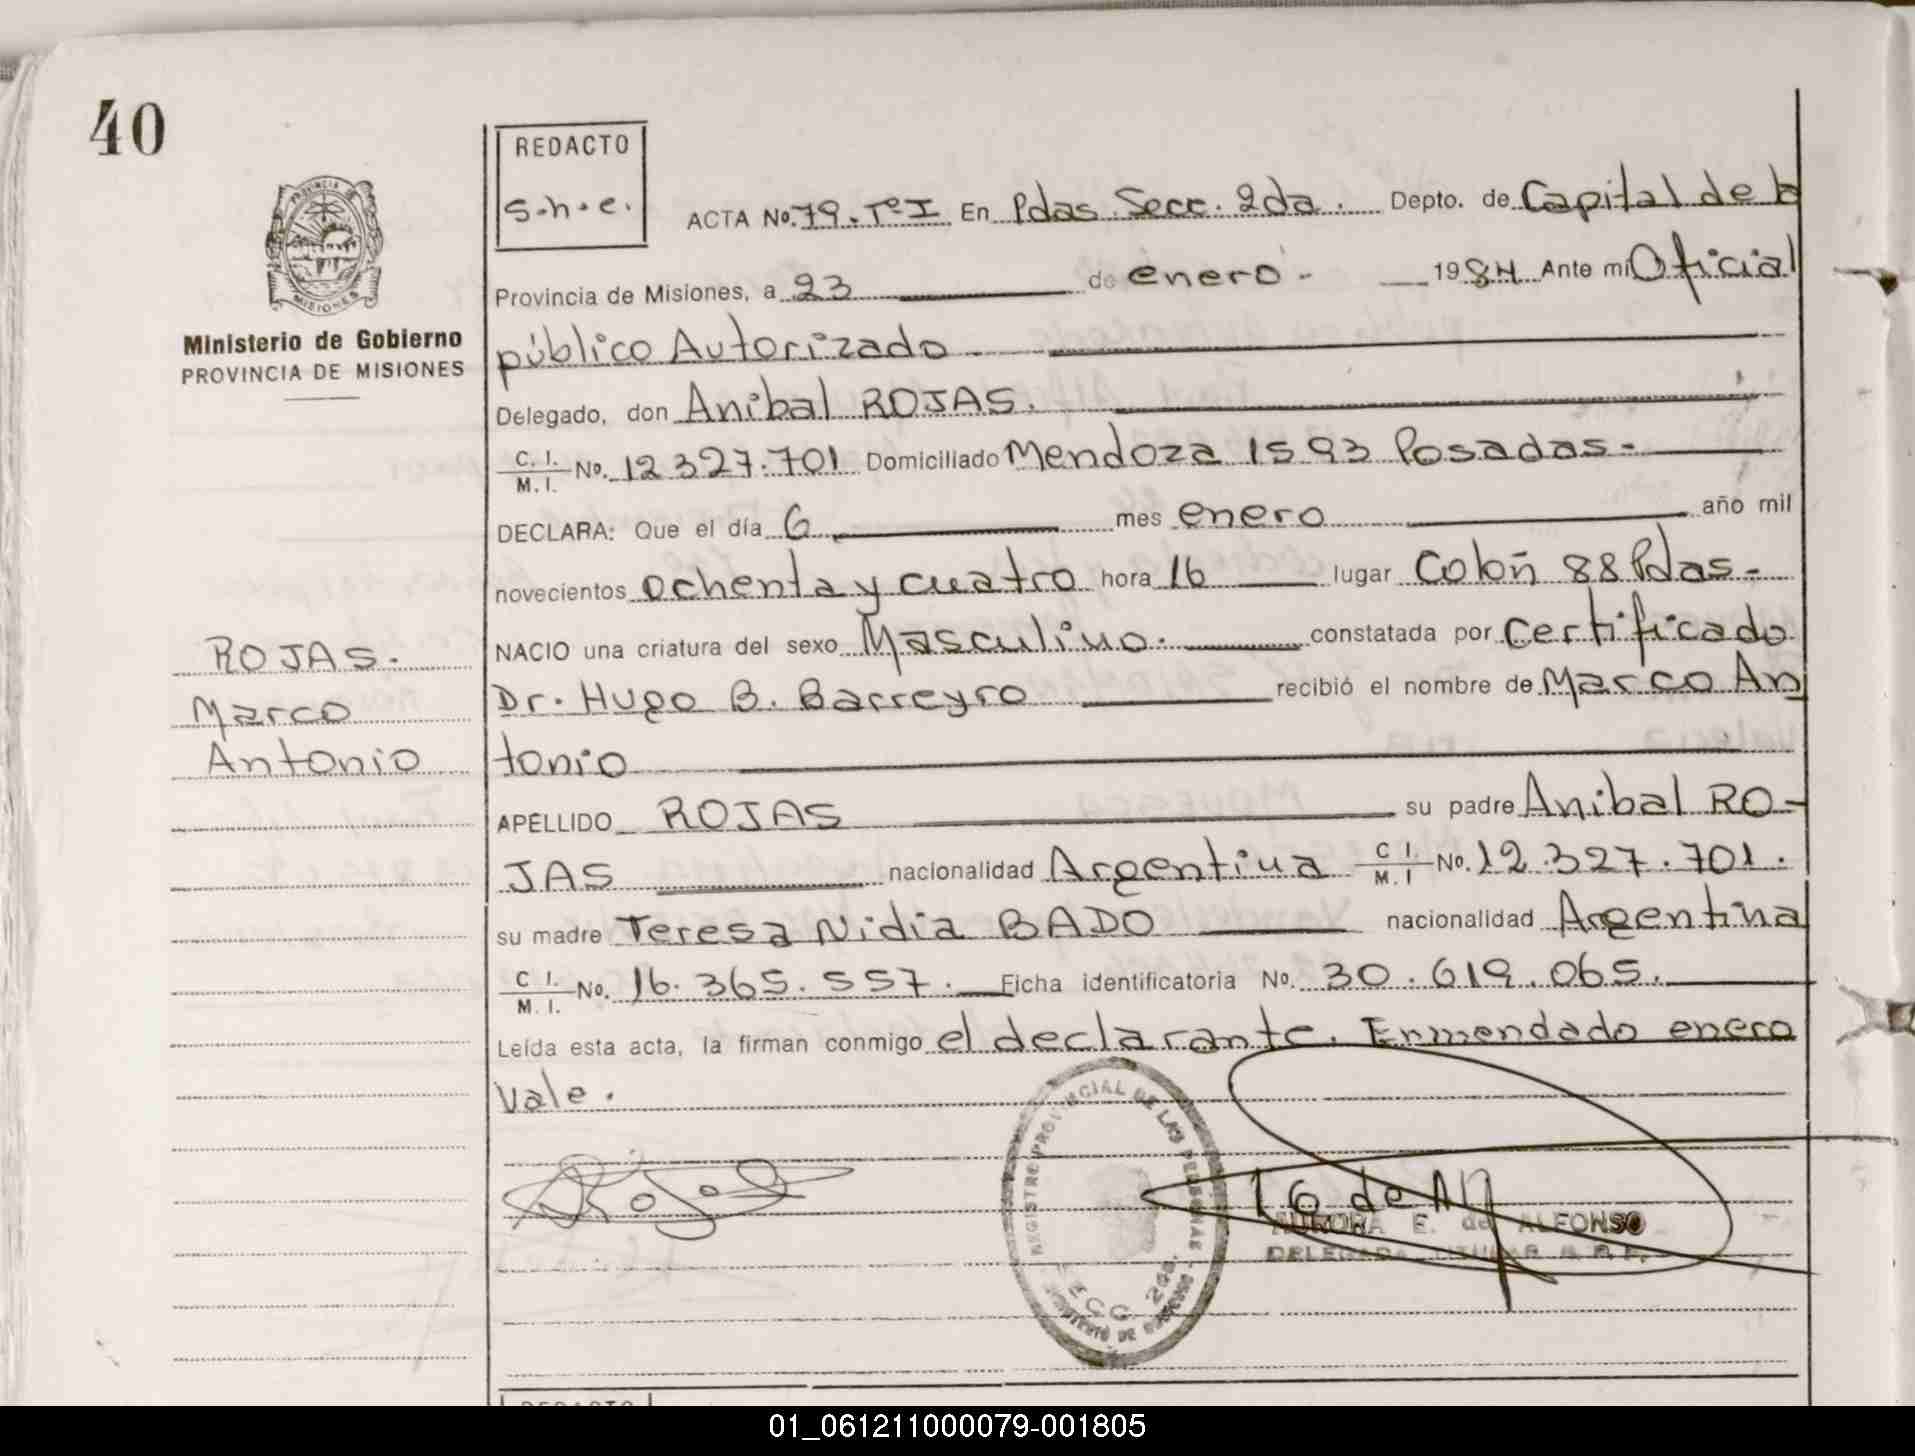 40
REDACTO
S.h.e.
PROVINCIA DE
MISIONES
Ministerio de Gobierno
PROVINCIA DE MISIONES
ACTA No. 79. Tº I En Pdas. Secc. 2da. Depto. de Capital de la
Provincia de Misiones, a 23 de enero - 1984 Ante mi Oficial
público Autorizado
Delegado, don Anibal ROJAS.
C. I. / M. I. No. 12 327.701 Domiciliado Mendoza 1593 Posadas-
DECLARA: Que el día 6 mes enero año mil
novecientos ochenta y cuatro hora 16 lugar Colón 88 Pdas-
NACIO una criatura del sexo Masculino. constatada por Certificado
Dr. Hugo B. Barreyro recibió el nombre de Marco An
tonio
ROJAS.
Marco
Antonio
APELLIDO ROJAS su padre Anibal RO-
JAS nacionalidad Argentina C I. / M. I No. 12.327.701.
su madre Teresa Nidia BADO nacionalidad Argentina
C I. / M. I. No. 16.365.557. Ficha identificatoria No. 30.619.065.
Leída esta acta, la firman conmigo el declarante. Enmendado enero
Vale.
REGISTRO PROVINCIAL DE LAS PERSONAS
SECC. 2da.
AURORA E. de ALFONSO
DELEGADA TITULAR
REDACTO
01_061211000079-001805